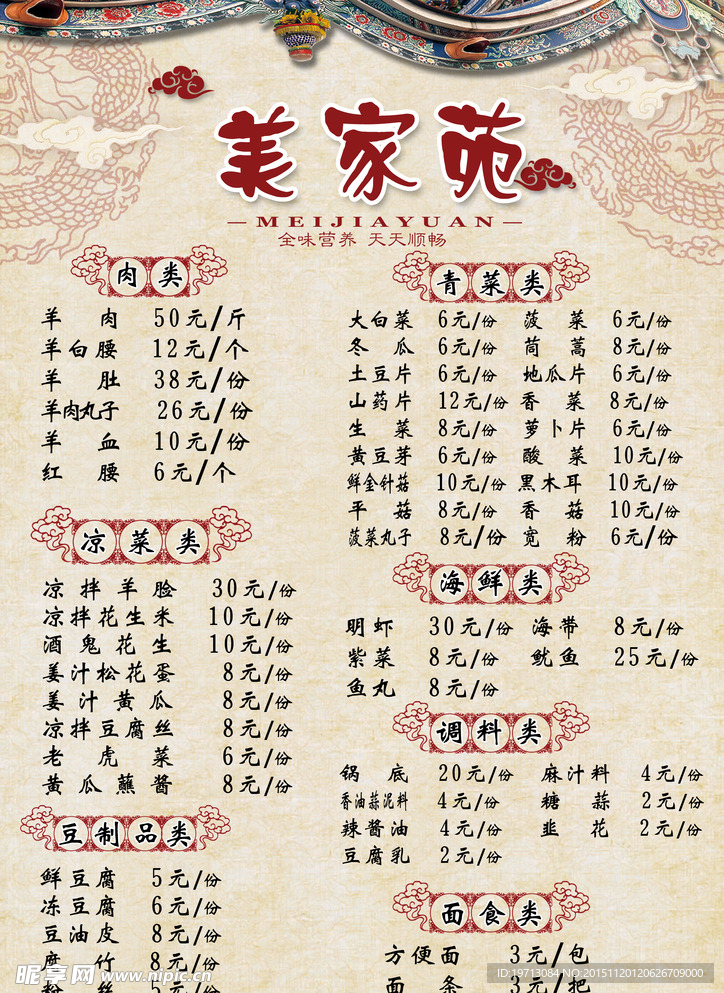 美家苑
MEIJIAYUAN
全味营养 天天顺畅
肉类
羊肉 50元/斤
羊白腰 12元/个
羊肚 38元/份
羊肉丸子 26元/份
羊血 10元/份
红腰 6元/个
凉菜类
凉拌羊脸 30元/份
凉拌花生米 10元/份
酒鬼花生 10元/份
姜汁松花蛋 8元/份
姜汁黄瓜 8元/份
凉拌豆腐丝 8元/份
老虎菜 6元/份
黄瓜蘸酱 8元/份
豆制品类
鲜豆腐 5元/份
冻豆腐 6元/份
豆油皮 8元/份
腐竹 8元/份
粉丝 5元/份
青菜类
大白菜 6元/份 菠菜 6元/份
冬瓜 6元/份 茼蒿 8元/份
土豆片 6元/份 地瓜片 6元/份
山药片 12元/份 香菜 8元/份
生菜 8元/份 萝卜片 6元/份
黄豆芽 6元/份 酸菜 10元/份
鲜金针菇 10元/份 黑木耳 10元/份
平菇 8元/份 香菇 10元/份
菠菜丸子 8元/份 宽粉 6元/份
海鲜类
明虾 30元/份 海带 8元/份
紫菜 8元/份 鱿鱼 25元/份
鱼丸 8元/份
调料类
锅底 20元/份 麻汁料 4元/份
香油蒜泥料 4元/份 糖蒜 2元/份
辣酱油 4元/份 韭花 2元/份
豆腐乳 2元/份
面食类
方便面 3元/包
面条 3元/把
昵享网 www.nipic.cn
ID:19713084 NO:20151120120626709000